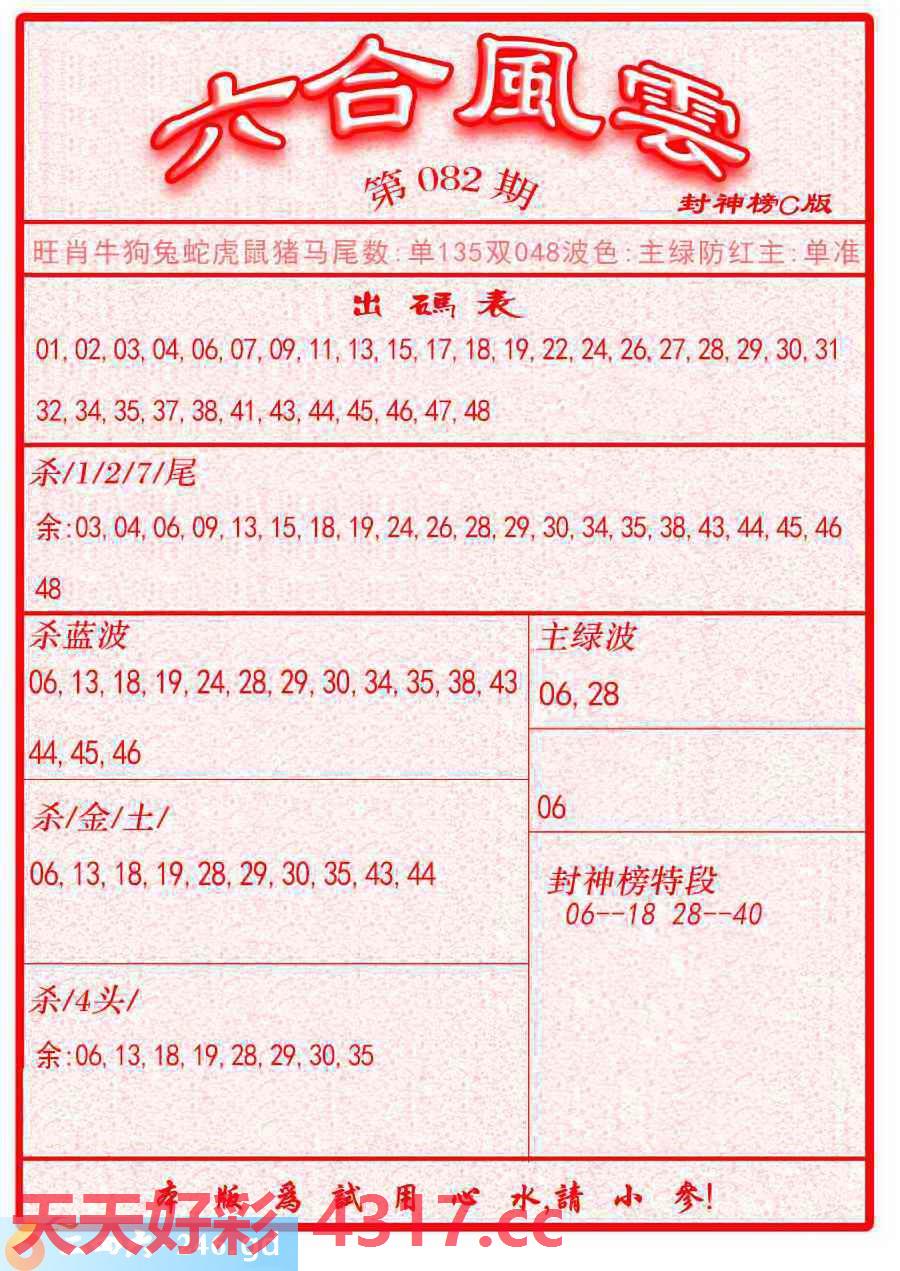 六合風雲
第 082 期
封神榜C版
旺肖牛狗兔蛇虎鼠猪马尾数:单135双048波色:主绿防红主:单准
出碼表
01,02,03,04,06,07,09,11,13,15,17,18,19,22,24,26,27,28,29,30,31
32,34,35,37,38,41,43,44,45,46,47,48
杀/1/2/7/尾
余:03,04,06,09,13,15,18,19,24,26,28,29,30,34,35,38,43,44,45,46
48
杀蓝波
06,13,18,19,24,28,29,30,34,35,38,43
44,45,46
主绿波
06,28
06
杀/金/土/
06,13,18,19,28,29,30,35,43,44
封神榜特段
06--18 28--40
杀/4头/
余:06,13,18,19,28,29,30,35
本版爲試用心水,請小參!
天天好彩 4317.cc
246.gd